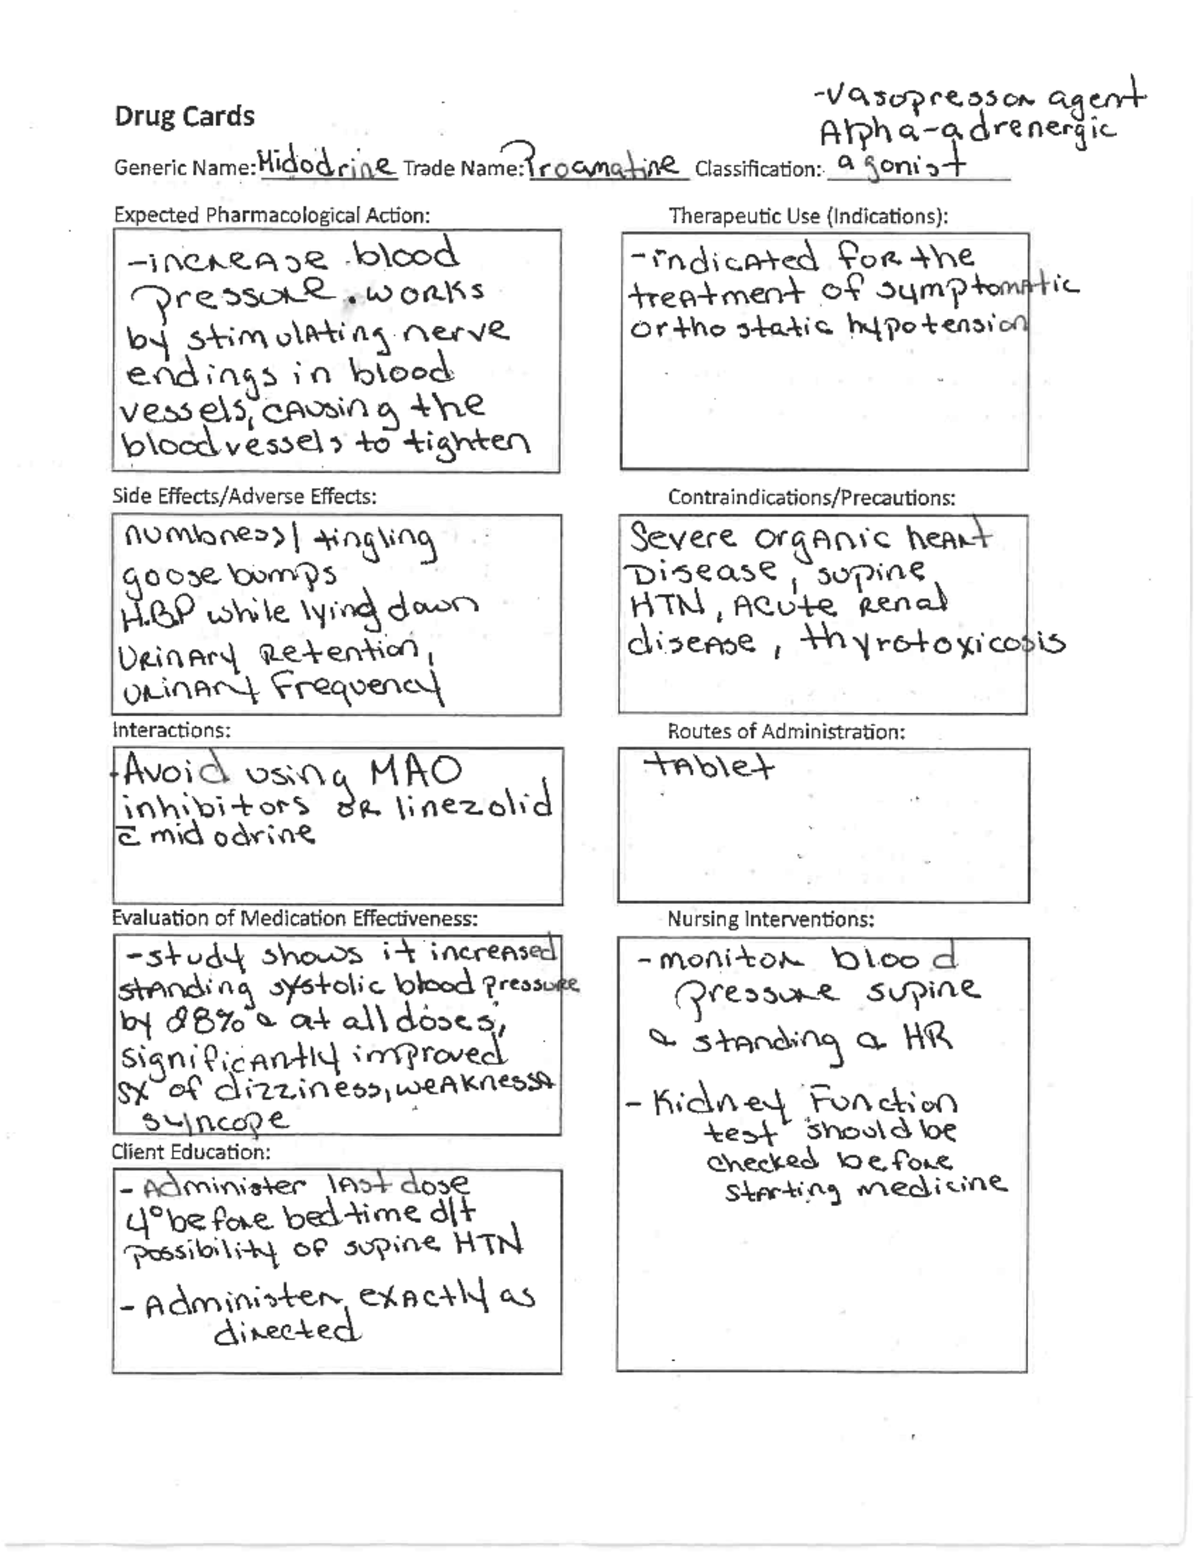 -vasopressor agent
Drug Cards
Alpha-adrenergic
Generic Name: Midodrine Trade Name: Proamatine Classification: agonist
Expected Pharmacological Action:
-increase blood
pressure. works
by stimulating nerve
endings in blood
vessels, causing the
blood vessels to tighten
Therapeutic Use (Indications):
-indicated for the
treatment of symptomatic
orthostatic hypotension
Side Effects/Adverse Effects:
numbness/tingling
goose bumps
H.BP while lying down
Urinary Retention,
urinary Frequency
Contraindications/Precautions:
Severe organic heart
Disease, supine
HTN, Acute Renal
disease, thyrotoxicosis
Interactions:
-Avoid using MAO
inhibitors or linezolid
c̅ midodrine
Routes of Administration:
tablet
Evaluation of Medication Effectiveness:
-study shows it increased
standing systolic blood pressure
by 88% & at all doses,
significantly improved
sx of dizziness, weakness &
syncope
Nursing Interventions:
-monitor blood
pressure supine
& standing & HR
- Kidney Function
test should be
checked before
starting medicine
Client Education:
- Administer last dose
4° before bedtime d/t
possibility of supine HTN
- Administer exactly as
directed